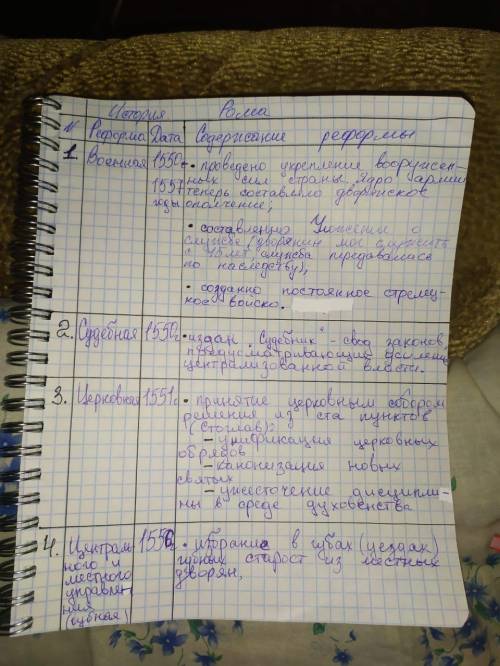 История Рома
N Реформа Дата Содержание реформы
1 Военная 1550- • проведено укрепление вооружен-
1557 ных сил страны. Ядро армии
годы теперь составляло дворянское
ополчение;
• составленно Уложении о
службе (дворянин мог служить
с 15 лет, служба передавалась
по наследству);
• созданно постоянное стрелец-
кое войско.
2. Судебная 1550г • издан "Судебник" - свод законов,
предусматривающие усиление
централизованной власти.
3. Церковная 1551г • принятие церковным собором
решения из ста пунктов
(Стоглав):
- унификация церковных
обрядов
- канонизация новых
святых
- ужесточение дисципли-
ны в среде духовенства
4. Централь 1556г • избрание в губах (уездах)
ного и губных старост из местных
местного дворян,
управлен
ния
(губная)